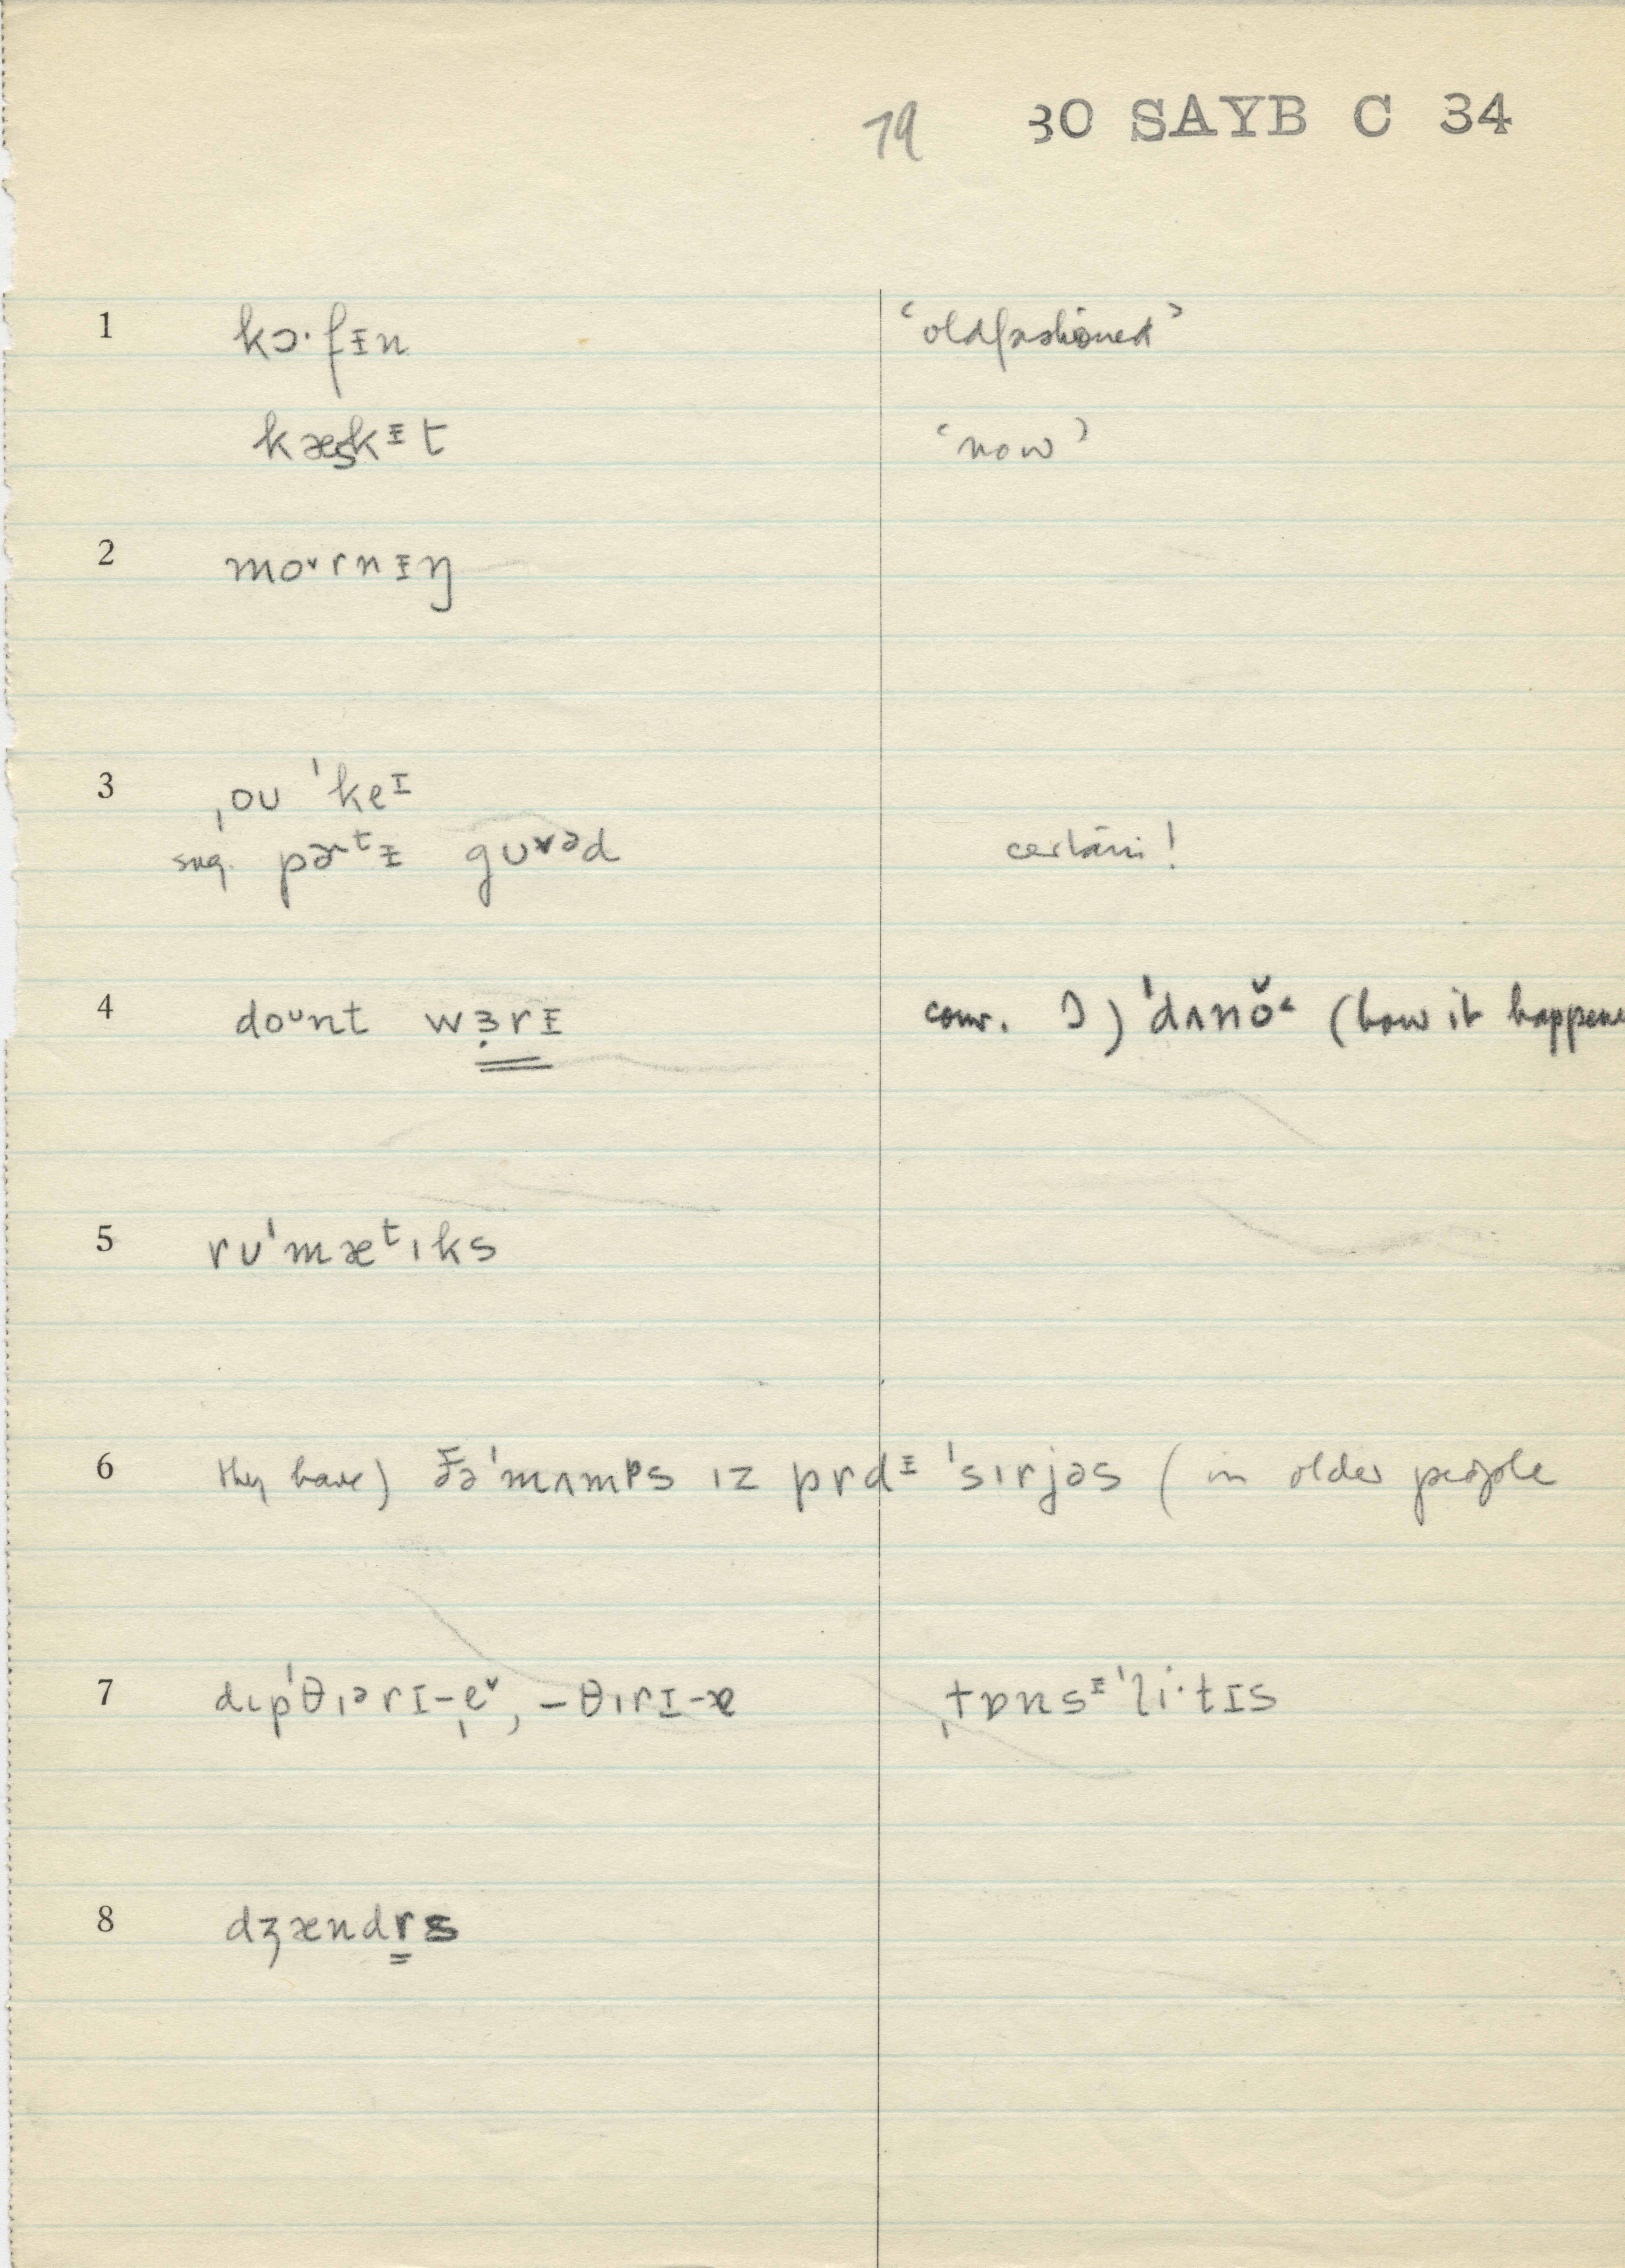 79 30 SAYB C 34
1 kɔ·fᵻn ‘oldfashioned’
kæs̬kᵻt ‘now’
2 mo˅rnᵻŋ
3 ˌou ˈkeᴵ
sug. pɚᵗᵻ gu˅ᵊd certain!
4 doᶸnt wɜ̣rᵻ conv. I) ˈdʌnŏ˂ (how it happene
5 ruˈmæᵗıks
6 they have) ðəˈmʌmᵖs ız prdᵻ ˈsırjəs (in older people
7 dıpˈθıᵊrɪ-e̩˅, –θırɪ-æ ˌtɒnsᵻˈli·tɪs
8 dʒændrs